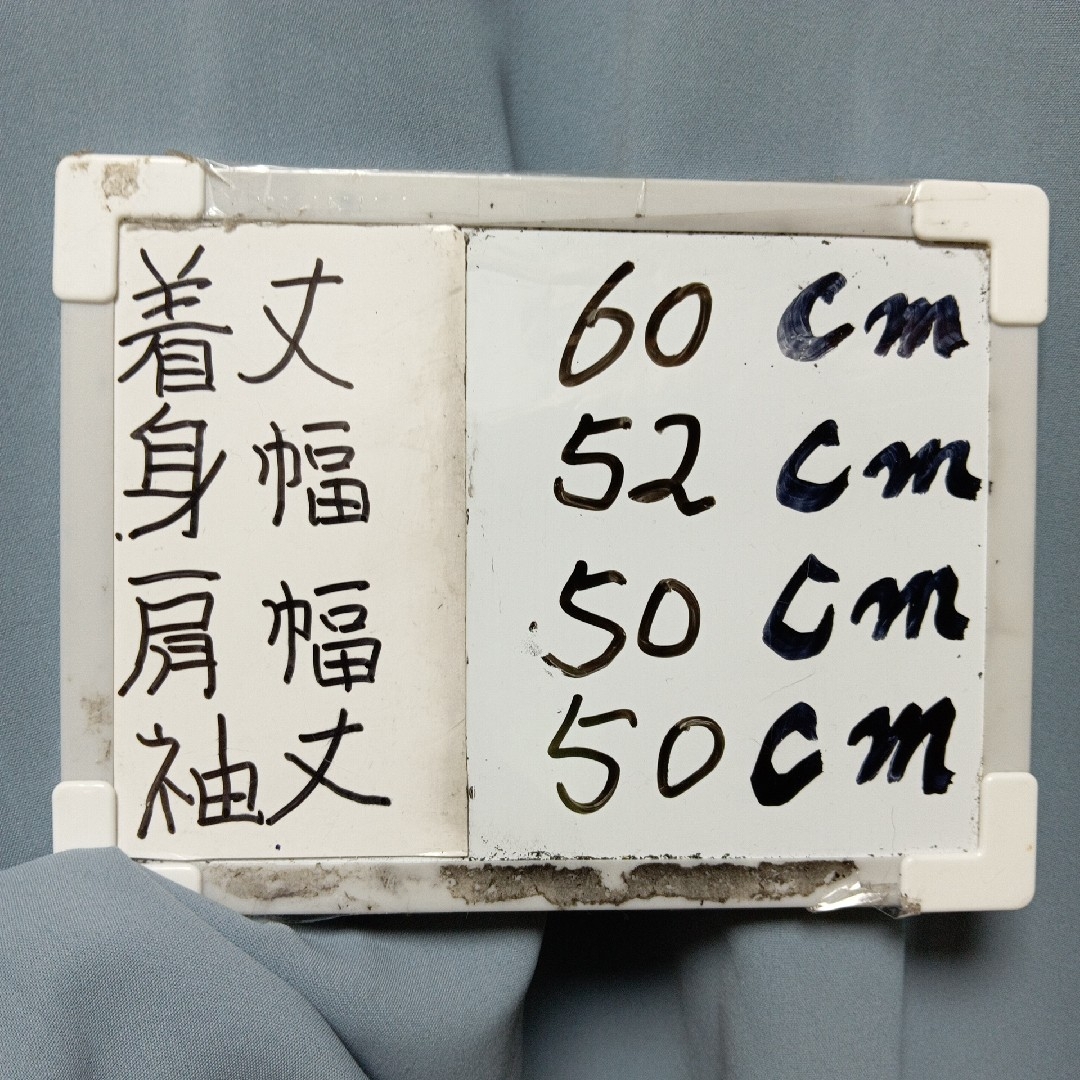 着丈 60 cm
身幅 52 cm
肩幅 50 cm
袖丈 50 cm